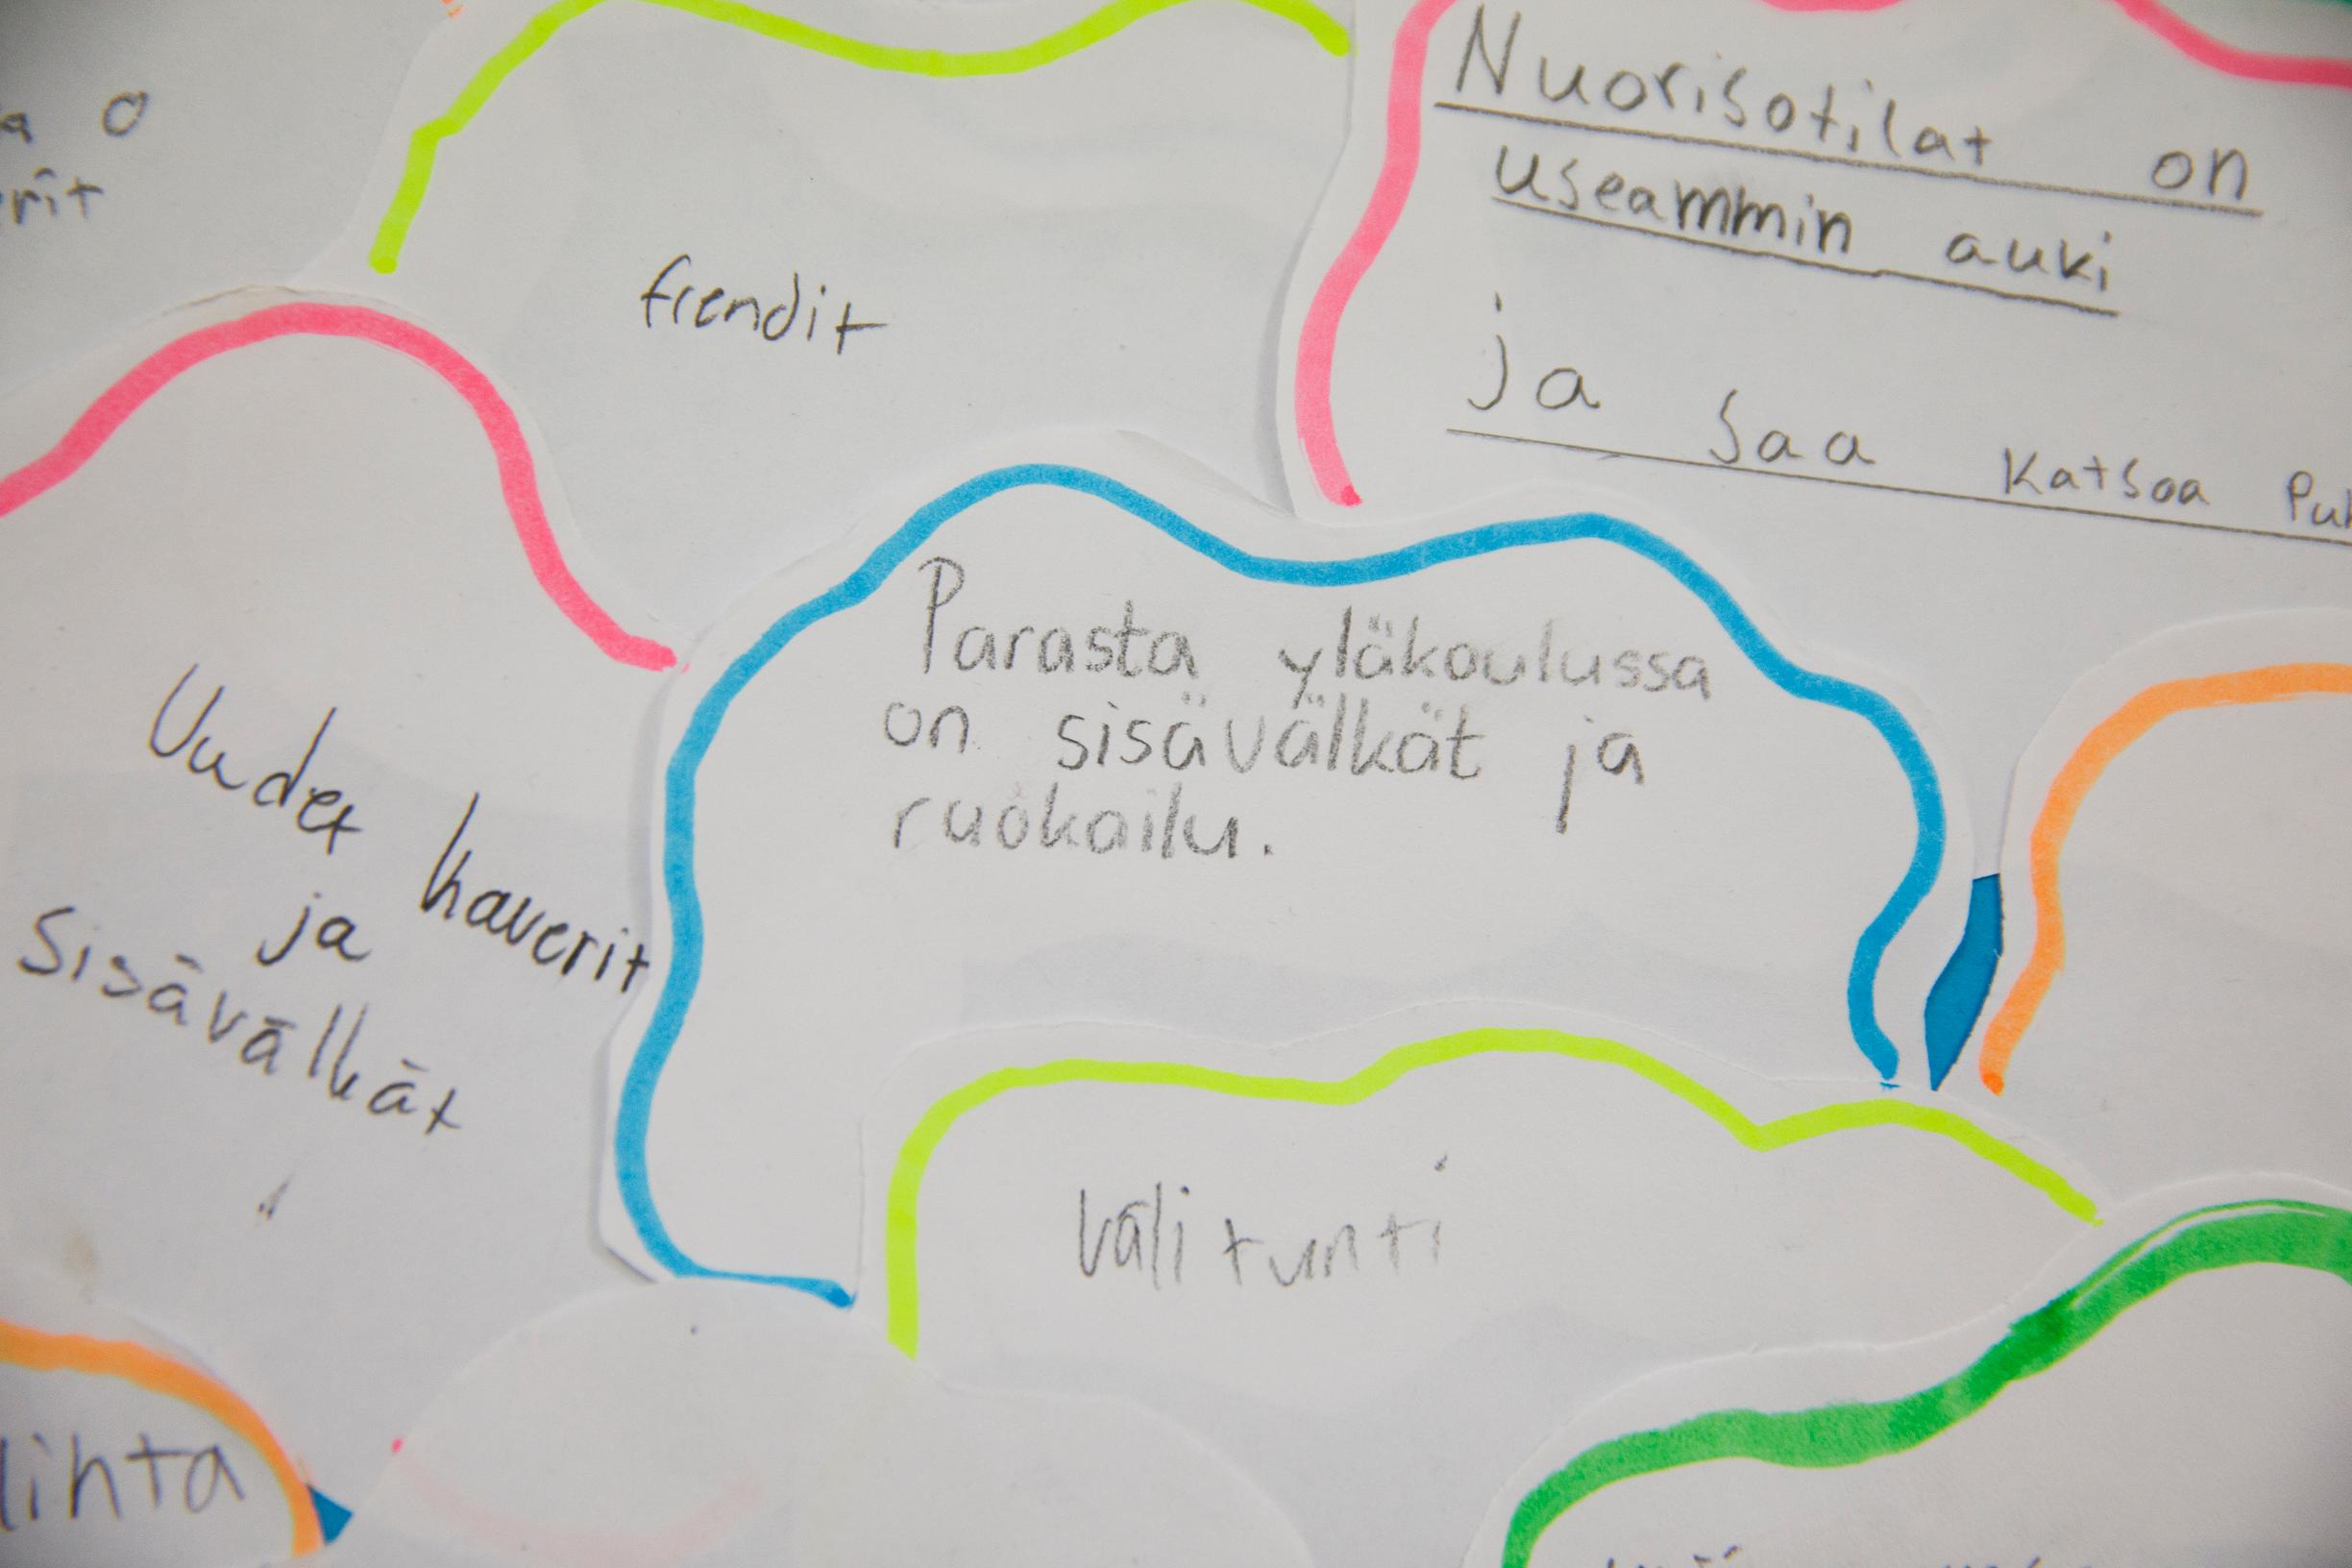 frendit
Nuorisotilat on
useammin auki
ja saa katsoa
Parasta yläkoulussa
on sisävälkät ja
ruokailu.
Uudet kaverit
ja
Sisävälkät
välitunti